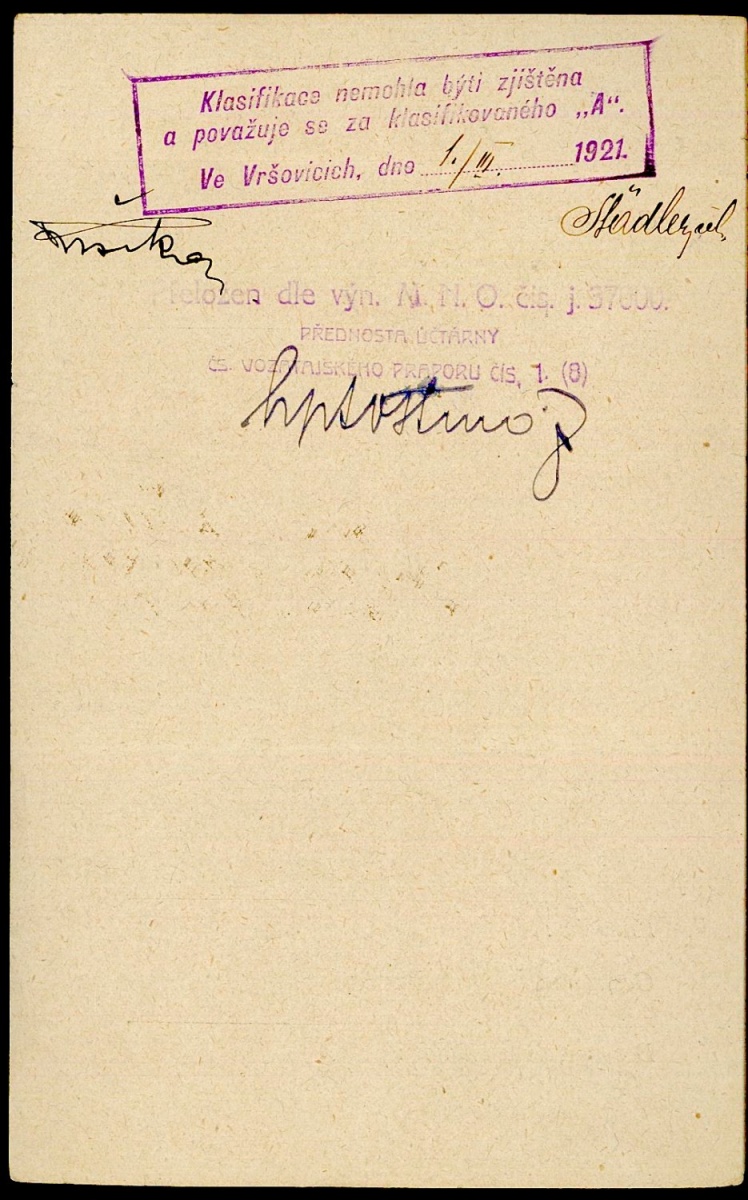 Klasifikace nemohla býti zjištěna
a považuje se za klasifikovaného „A“.
Ve Vršovicích, dne 1./III. 1921.
Přeložen dle výn. M. N. O. čís. j. 37600.
PŘEDNOSTA ÚČTÁRNY
ČS. VOZATAJSKÉHO PRAPORU ČÍS, 1. (8)